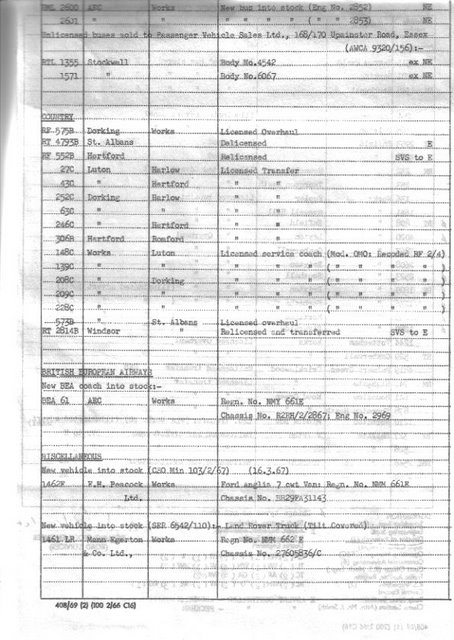 RML 2600 AEC Works New bus into stock (Eng No. 2852) NE
2601 " " " " " " ( " " 2853) NE
Delicensed buses sold to Passenger Vehicle Sales Ltd., 168/170 Upminster Road, Essex
(AWCA 9320/156):-
RTL 1355 Stockwell Body No.4542 ex NE
1571 " Body No.6067 ex NE
COUNTRY
RF 575B Dorking Works Licensed Overhaul
RT 4793B St. Albans Delicensed E
RF 552B Hertford Relicensed SVS to E
27C Luton Harlow Licensed Transfer
43C " Hertford " "
252C Dorking Harlow " "
63C " " " "
246C " Hertford " "
306B Hertford Romford " "
148C Works Luton Licensed service coach (Mod. OMO: Recoded RF 2/4)
139C " " " " " ( " " " " )
208C " Dorking " " " ( " " " " )
209C " " " " " ( " " " " )
228C " " " " " ( " " " " )
573B " St. Albans Licensed overhaul
RT 2814B Windsor " Relicensed and transferred SVS to E
BRITISH EUROPEAN AIRWAYS
New BEA coach into stock:-
BEA 61 AEC Works Regn. No. NMY 661E
Chassis No. R2RH/2/2867; Eng No. 2969
MISCELLANEOUS
New vehicle into stock (CSO Min 103/2/67) (16.3.67)
1462F F.H. Peacock Works Ford Anglia 7 cwt Van: Regn. No. NMM 661E
Ltd. Chassis No. BB29FA31143
New vehicle into stock (SER 6542/110):- Land Rover Truck (Tilt Covered)
1461 LR Mann Egerton Works Regn No. NMM 662 E
& Co. Ltd., Chassis No. 27605836/C
408/69 (2) (100 2/66 C16)